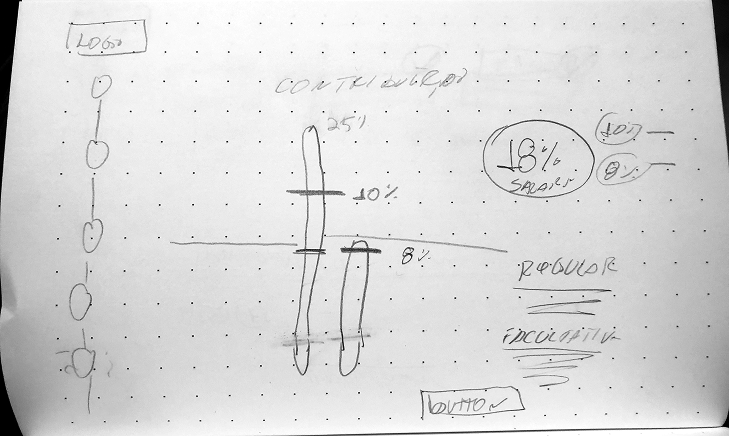 LOGO
CONTRIBUIÇÃO
25%
10%
8%
18%
SALÁRIO
10%
8%
REGULAR
FACULTATIVA
BUTTON